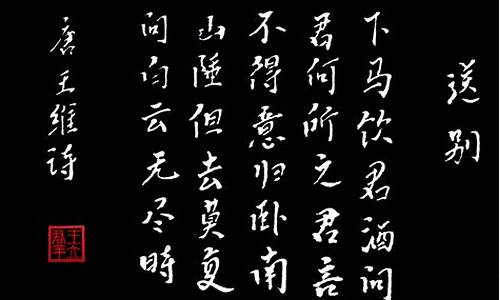 送别
下马饮君酒问
君何所之君言
不得意归卧南
山陲但去莫复
问白云无尽時
唐王维诗